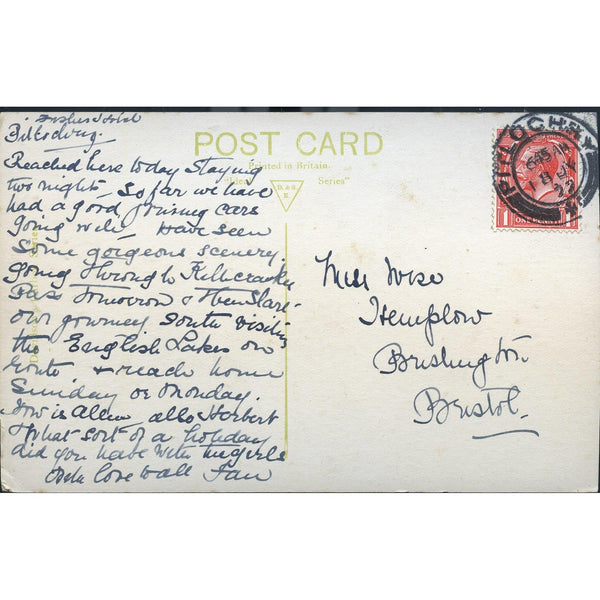 Fishers Hotel
Pitlochry.
Reached here today staying
two night. So far we have
had a good
cars
going well. Have seen
some gorgeous scenery.
Going through Killicrankie
Pass Tomorrow & then Start
our journey South visiting
the English Lakes on
route & reach home
Sunday or Monday.
How is Allen also Herbert
& What sort of a holiday
did you have with the girls
love to all Fan
POST CARD
Printed in Britain.
Series"
D. & S.
K.
PITLOCHRY
ONE PENNY
Miss Wise
Hemplow
Brislington
Bristol.